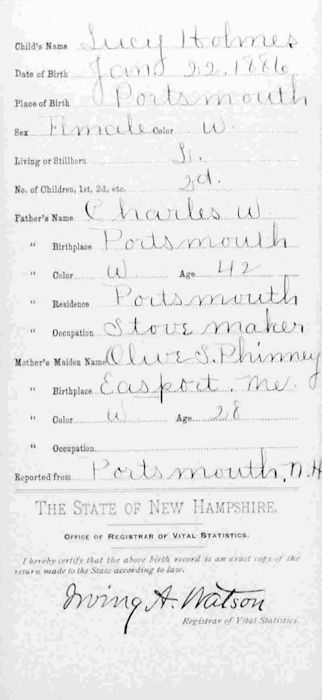 Child's Name Lucy Holmes
Date of Birth Jan 22, 1886
Place of Birth Portsmouth
Sex Female Color W.
Living or Stillborn L.
No. of Children, 1st, 2d, etc. 2d.
Father's Name Charles W.
" Birthplace Portsmouth
" Color W Age 42
" Residence Portsmouth
" Occupation Stove maker
Mother's Maiden Name Olive S. Phinney
" Birthplace Easport, Me.
" Color W Age 28
" Occupation
Reported from Portsmouth, N.H
THE STATE OF NEW HAMPSHIRE.
OFFICE OF REGISTRAR OF VITAL STATISTICS.
I hereby certify that the above birth record is an exact copy of the
return made to the State according to law.
Irving A. Watson
Registrar of Vital Statistics